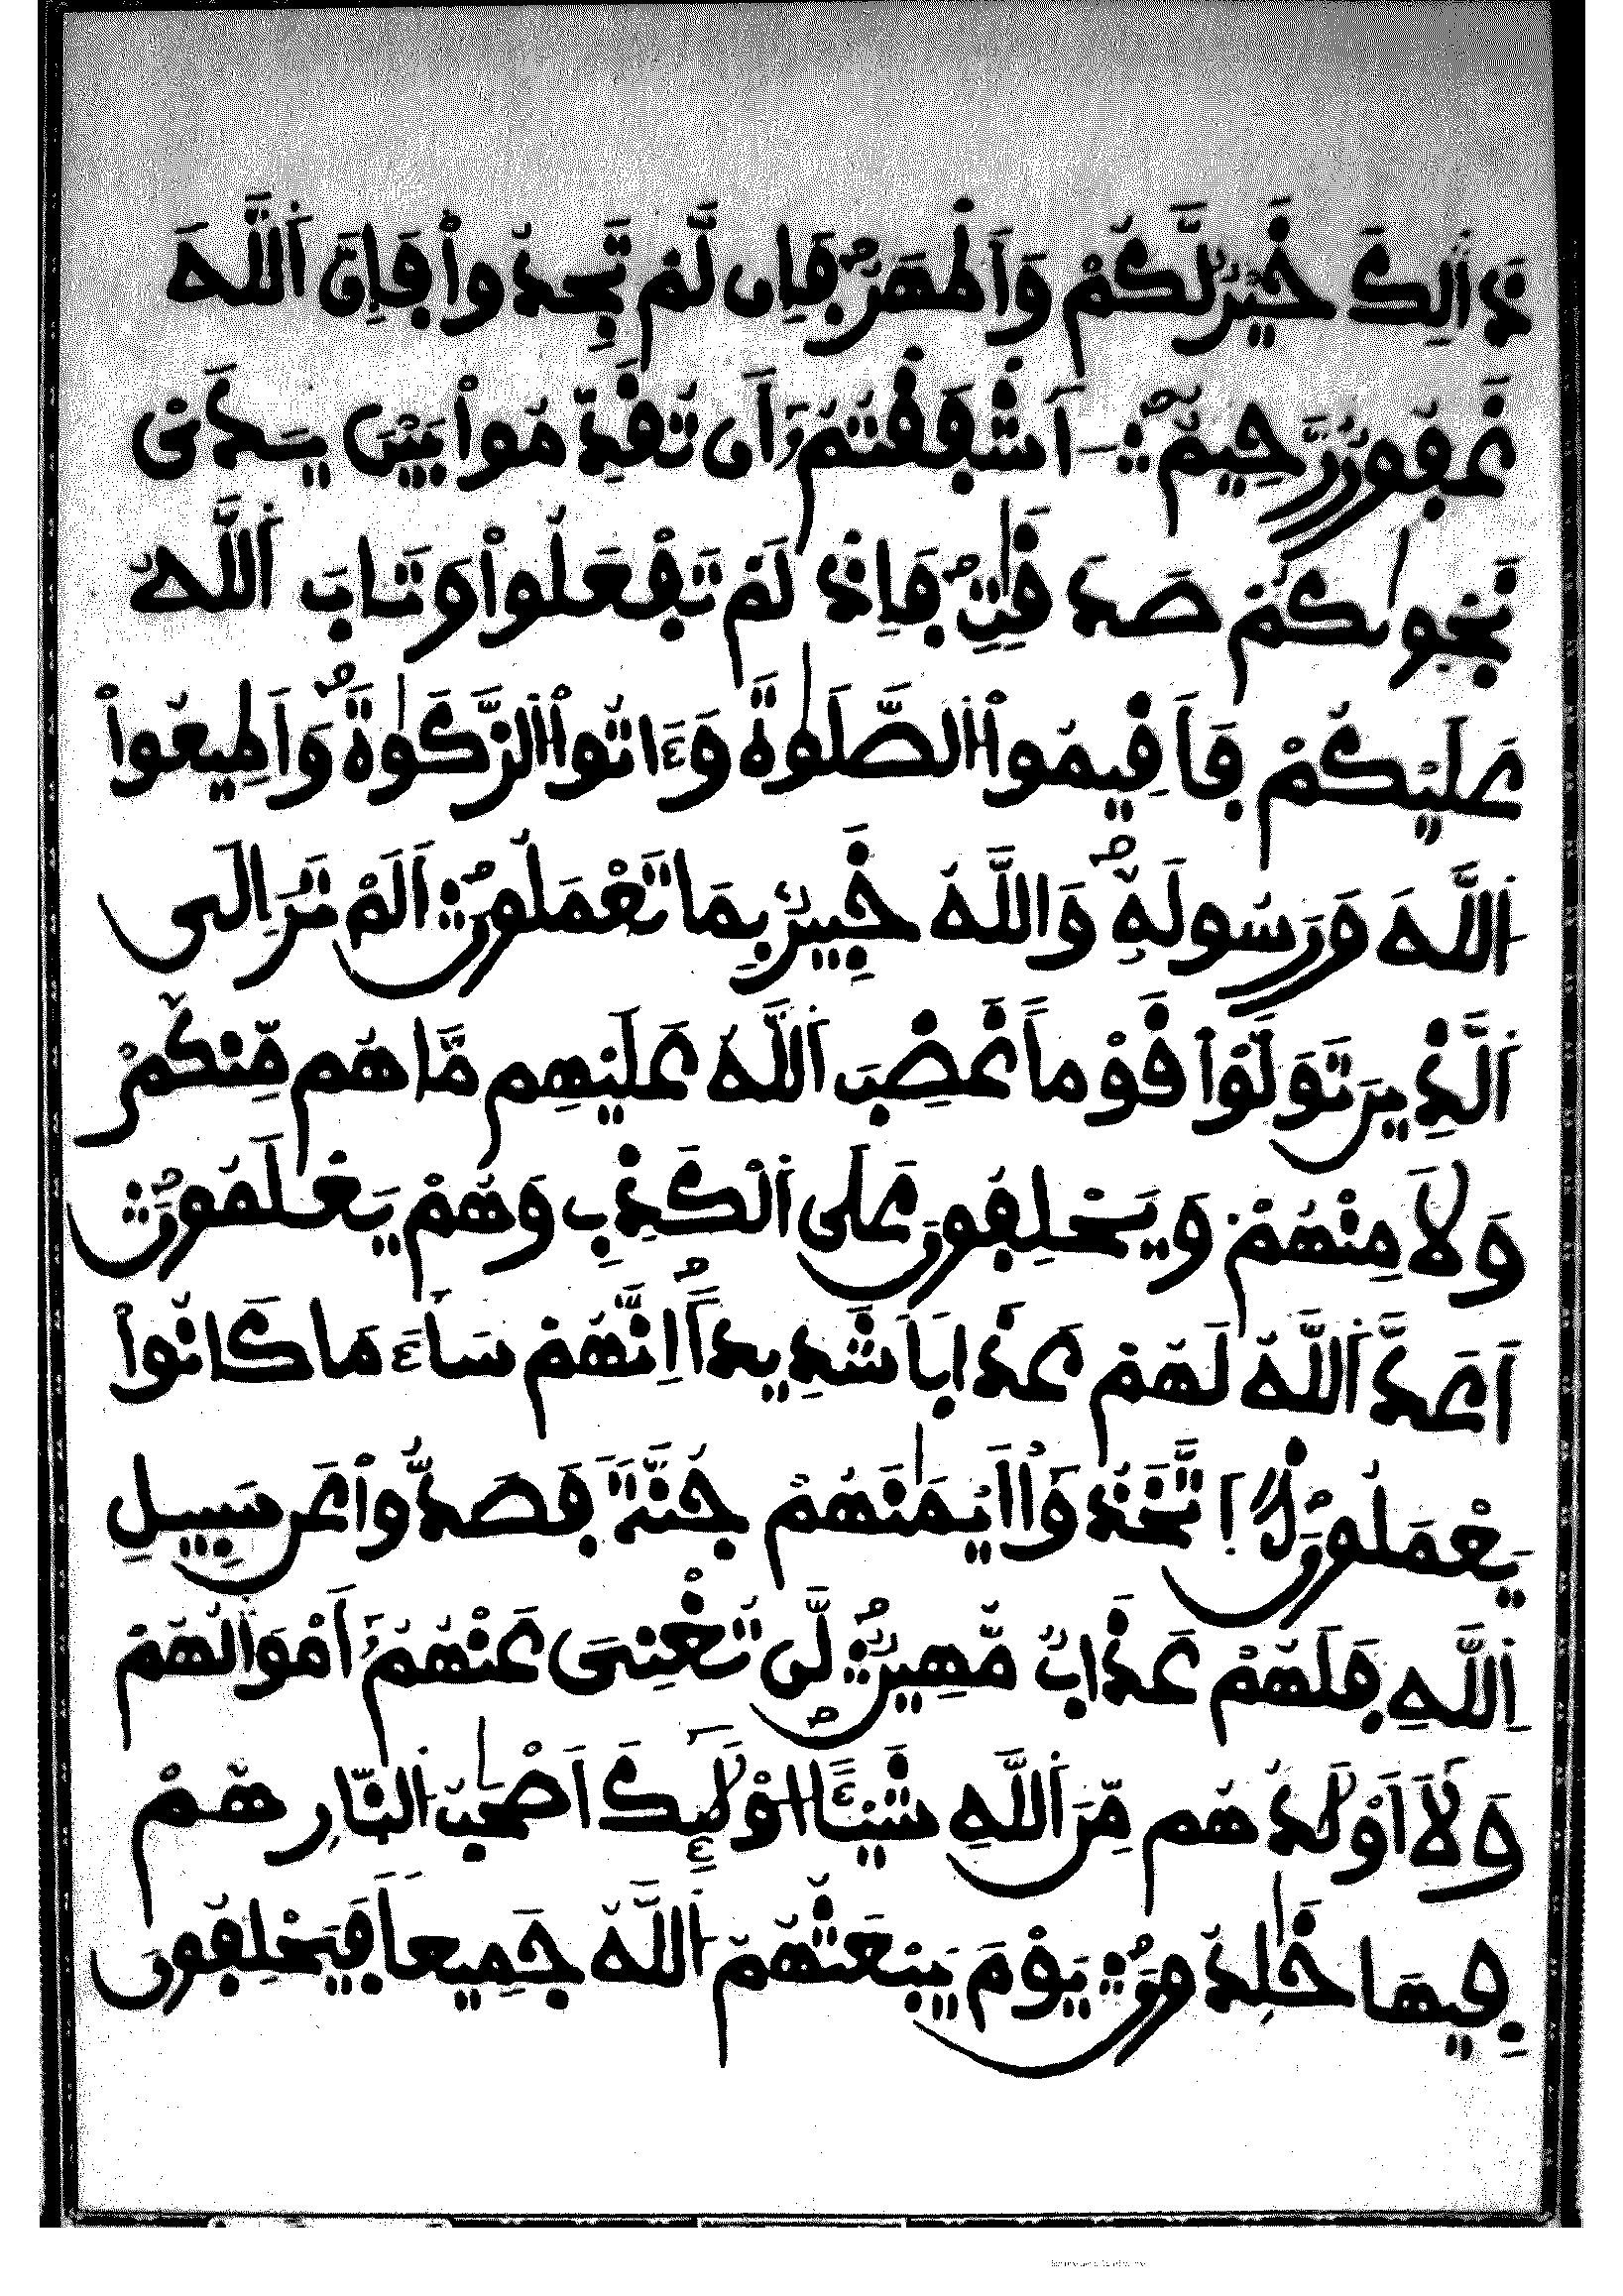 ذَٰلِكَ خَيْرٌ لَّكُمْ وَأَطْهَرُ فَإِن لَّمْ تَجِدُوا۟ فَإِنَّ ٱللَّهَ
غَفُورٌ رَّحِيمٌ ءَٰا۬شْفَقْتُمُۥٓ أَن تُقَدِّمُوا۟ بَيْنَ يَدَىْ
نَجْوَىٰكُمْ صَدَقَٰتٍ فَإِذْ لَمْ تَفْعَلُوا۟ وَتَابَ ٱللَّهُ
عَلَيْكُمْ فَأَقِيمُوا۟ ٱلصَّلَوٰةَ وَءَاتُوا۟ ٱلزَّكَوٰةَ وَأَطِيعُوا۟
ٱللَّهَ وَرَسُولَهُۥ وَٱللَّهُ خَبِيرٌۢ بِمَا تَعْمَلُونَ أَلَمْ تَرَ إِلَى
ٱلَّذِينَ تَوَلَّوْا۟ قَوْمًا غَضِبَ ٱللَّهُ عَلَيْهِم مَّا هُم مِّنكُمْ
وَلَا مِنْهُمْ وَيَحْلِفُونَ عَلَى ٱلْكَذِبِ وَهُمْ يَعْلَمُونَ
أَعَدَّ ٱللَّهُ لَهُمْ عَذَابًا شَدِيدًا إِنَّهُمْ سَآءَ مَا كَانُوا۟
يَعْمَلُونَ ٱتَّخَذُوٓا۟ أَيْمَٰنَهُمْ جُنَّةً فَصَدُّوا۟ عَن سَبِيلِ
ٱللَّهِ فَلَهُمْ عَذَابٌ مُّهِينٌ لَّن تُغْنِىَ عَنْهُمُۥٓ أَمْوَٰلُهُمْ
وَلَآ أَوْلَٰدُهُم مِّنَ ٱللَّهِ شَيْـًٔا أُو۟لَٰٓئِكَ أَصْحَٰبُ ٱلنَّارِ هُمْ
فِيهَا خَٰلِدُونَ يَوْمَ يَبْعَثُهُمُ ٱللَّهُ جَمِيعًا فَيَحْلِفُونَ